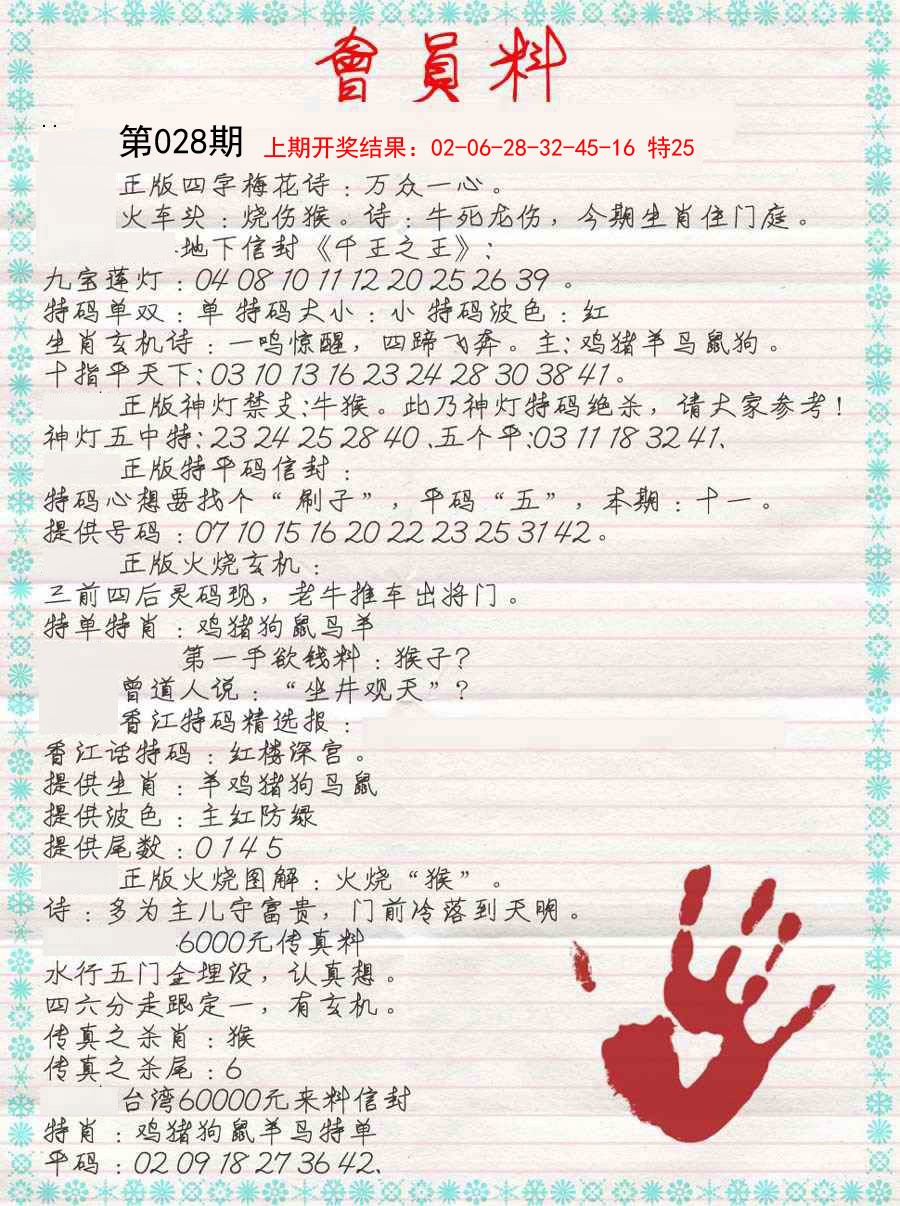 會員料
第028期 上期开奖结果：02-06-28-32-45-16 特25
正版四字梅花诗：万众一心。
火车头：烧伤猴。诗：牛死龙伤，今期生肖住门庭。
地下信封《千王之王》:
九宝莲灯：04 08 10 11 12 20 25 26 39 。
特码单双：单 特码大小：小 特码波色：红
生肖玄机诗：一鸣惊醒，四蹄飞奔。主:鸡猪羊马鼠狗。
十指平天下:03 10 13 16 23 24 28 30 38 41。
正版神灯禁支:牛猴。此乃神灯特码绝杀，请大家参考!
神灯五中特:23 24 25 28 40 、五个平:03 11 18 32 41、
正版特平码信封：
特码心想要找个“刷子”，平码“五”，本期：十一。
提供号码：07 10 15 16 20 22 23 25 31 42 。
正版火烧玄机：
三前四后灵码现，老牛推车出将门。
特单特肖：鸡猪狗鼠马羊
第一手欲钱料：猴子?
曾道人说：“坐井观天”?
香江特码精选报：
香江话特码：红楼深宫。
提供生肖：羊鸡猪狗马鼠
提供波色：主红防绿
提供尾数：0 1 4 5
正版火烧图解：火烧“猴”。
诗：多为主儿守富贵，门前冷落到天明。
6000元传真料
水行五门金埋没，认真想。
四六分走跟定一，有玄机。
传真之杀肖：猴
传真之杀尾：6
台湾60000元来料信封
特肖：鸡猪狗鼠羊马特单
平码：02 09 18 27 36 42、